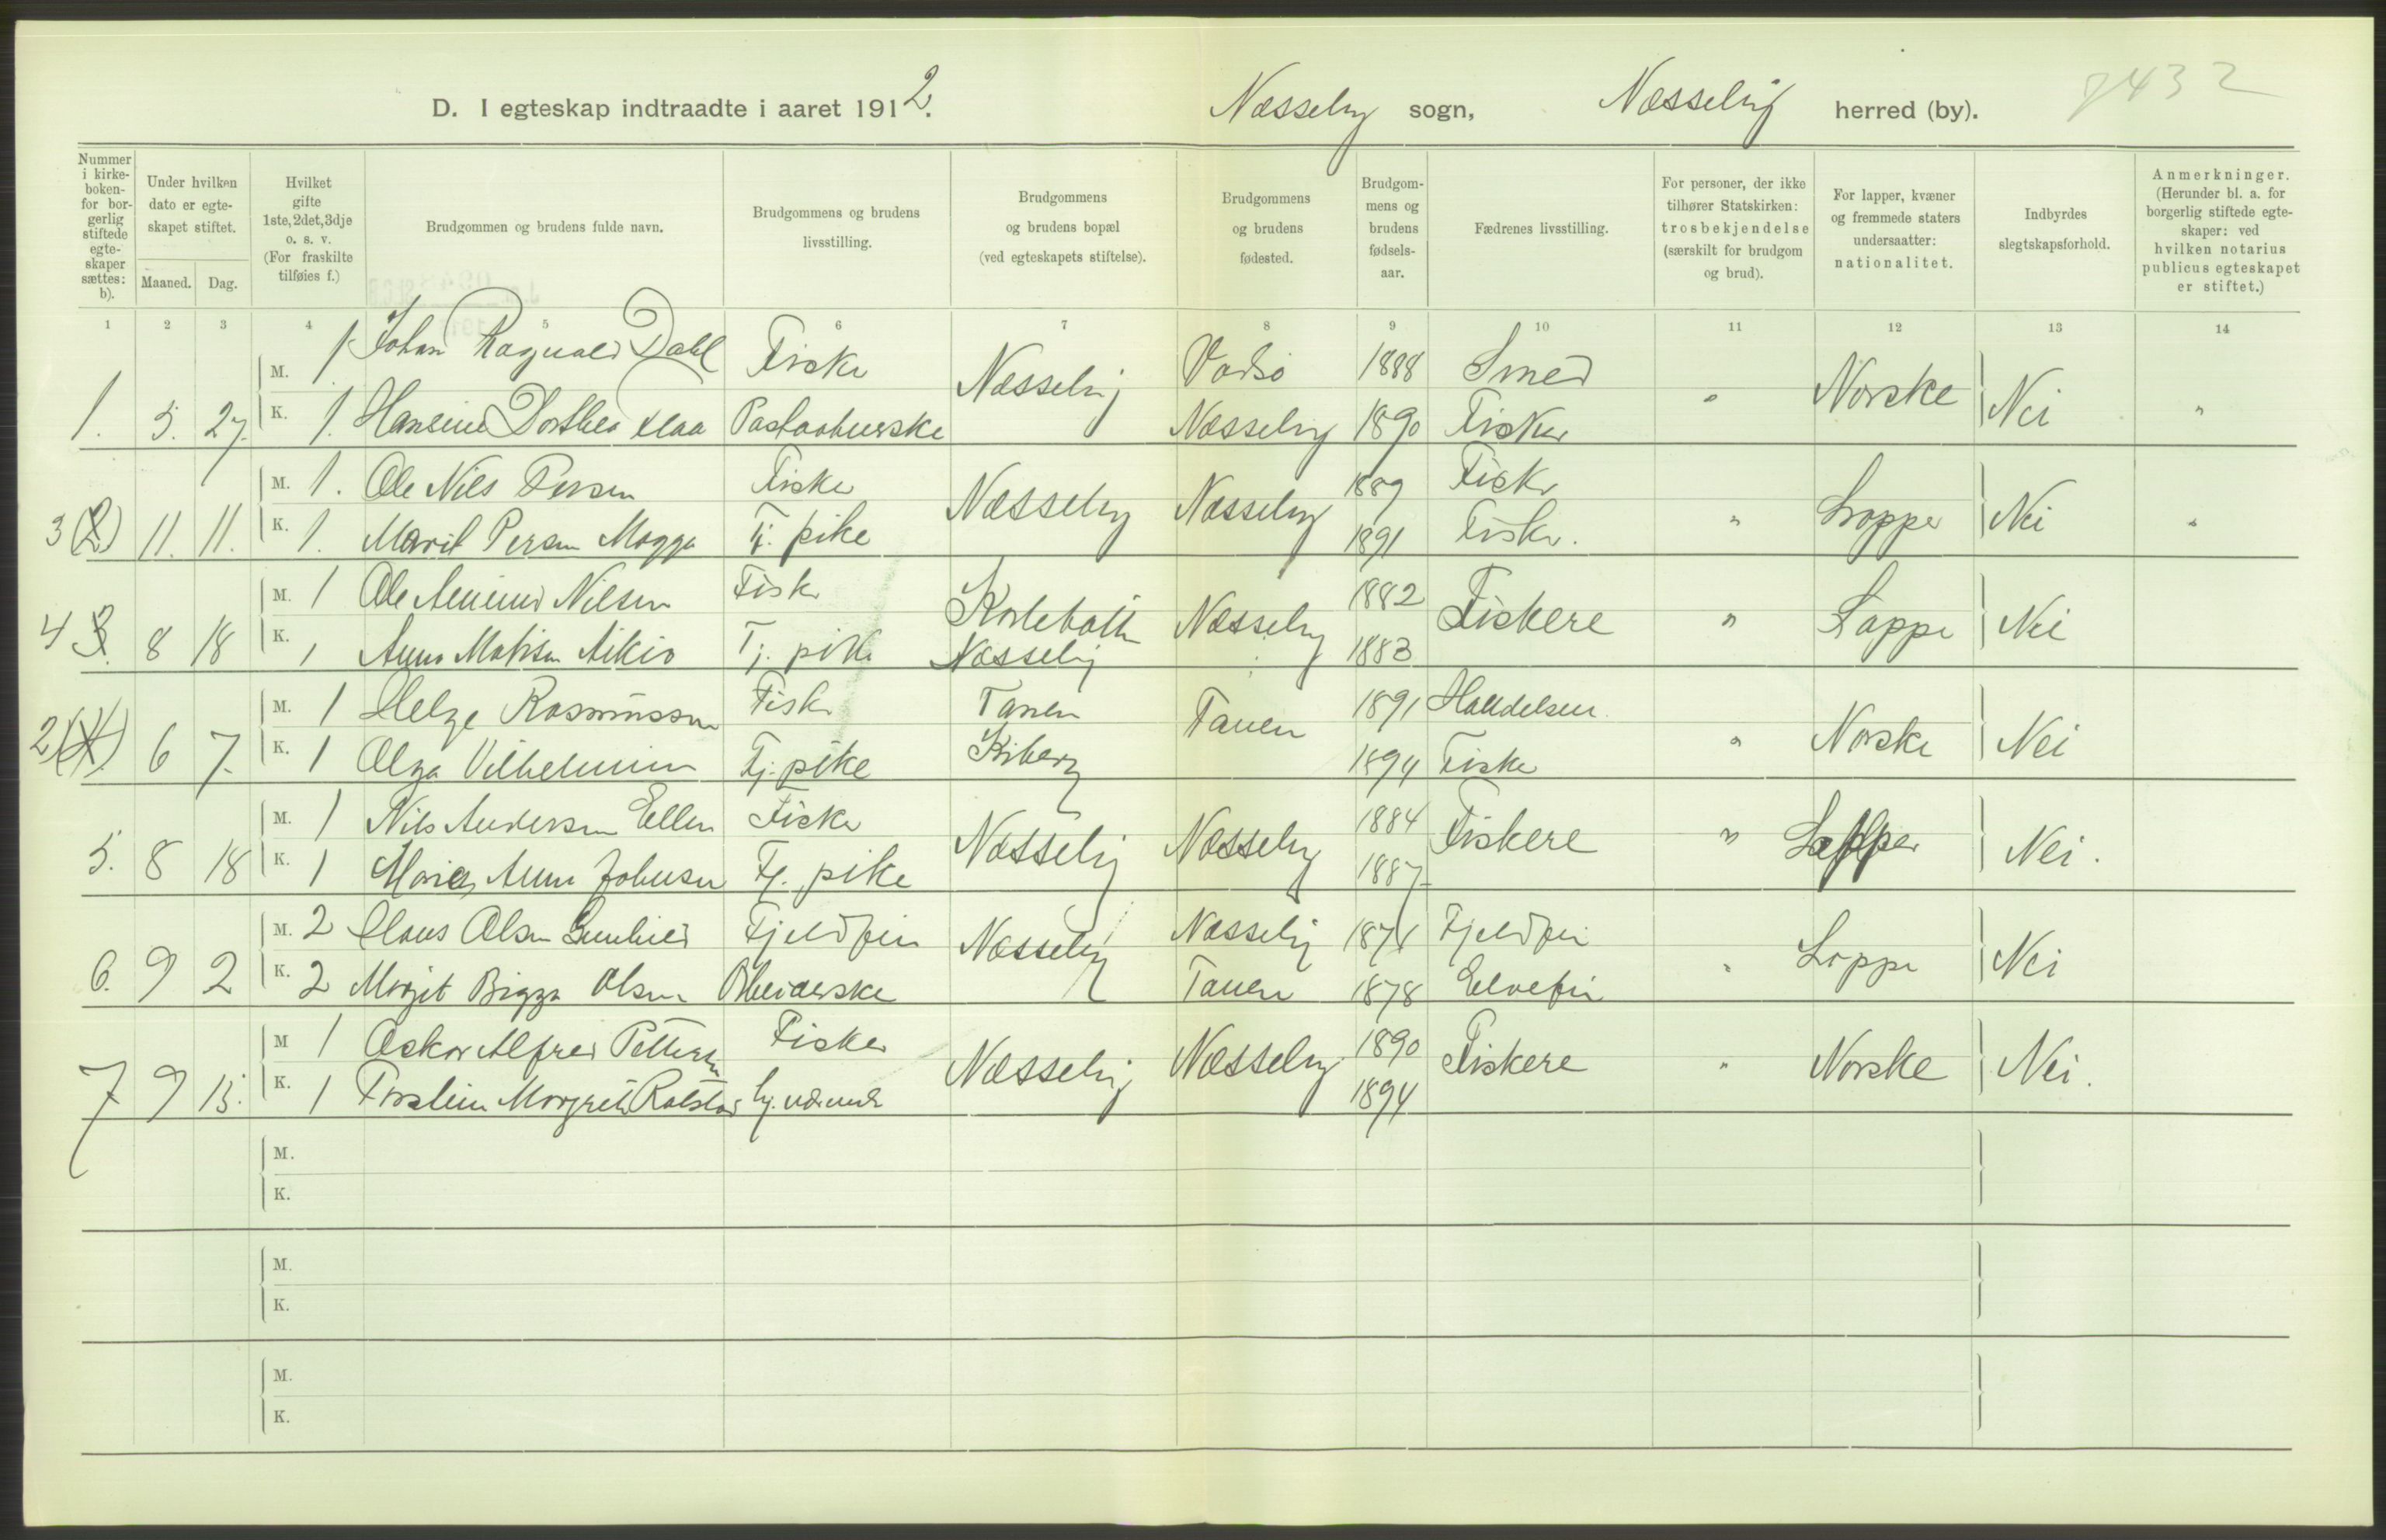 D. I egteskap indtraadte i aaret 1912. Næsseby sogn, Næsseby herred (by). 7432
Nummer i kirkeboken- for borgerlig stiftede egteskaper sættes: b).
Under hvilken dato er egteskapet stiftet.
Maaned. Dag.
Hvilket gifte 1ste, 2det, 3dje o. s. v. (For fraskilte tilføies f.)
Brudgommen og brudens fulde navn.
Brudgommens og brudens livsstilling.
Brudgommens og brudens bopæl (ved egteskapets stiftelse).
Brudgommens og brudens fødested.
Brudgommens og brudens fødselsaar.
Fædrenes livsstilling.
For personer, der ikke tilhører Statskirken: trosbekjendelse (særskilt for brudgom og brud).
For lapper, kvæner og fremmede staters undersaatter: nationalitet.
Indbyrdes slegtskapsforhold.
Anmerkninger. (Herunder bl. a. for borgerlig stiftede egteskaper: ved hvilken notarius publicus egteskapet er stiftet.)
1 2 3 4 5 6 7 8 9 10 11 12 13 14
M. 1 Johan Ragnvald Dahl Fisker Næsseby Vadsø 1888 Smed Norske Nei
1. 5. 27. K. 1. Hansine Dorthea Næsseby 1890 Fisker
M. 1. Ole Nils Persen Fisker Næsseby Næsseby 1889 Fisker " Lapper Nei "
3 (2) 11. 11. K. 1. Marit Persen Magga Tj. pike 1891 Fisker.
M. 1 Ole Nilsen Fisker Næsseby 1882 Fiskere " Lapper Nei
4 3. 8 18 K. 1 Anna Mathisen Aikio Tj. pike Næsseby 1883
M. 1 Helge Rasmussen Fisker Tanen Tanen 1891 " Norske Nei
2 (4). 6 7. K. 1 Olga Vilhelmine Tj. pike Kiberg 1894 Fisker
M. 1 Nils Andersen Ellen Fisker Næsseby Næsseby 1884 Fiskere " Lapper Nei.
5. 8 18 K. 1 Anna Johnsen Tj. pike 1887
M. 2 Olsen Fjeldfin Næsseby Næsseby 1871 Fjeldfin " Lapper Nei
6. 9 2 K. 2 Margit Bigga Olsen Tanen 1878 Elvefin
M 1 Oskar Alfred Pettersen Fisker Næsseby Næsseby 1890 Fiskere " Norske Nei.
7 9 15. K. 1 1894
M.
K.
M.
K.
M.
K.